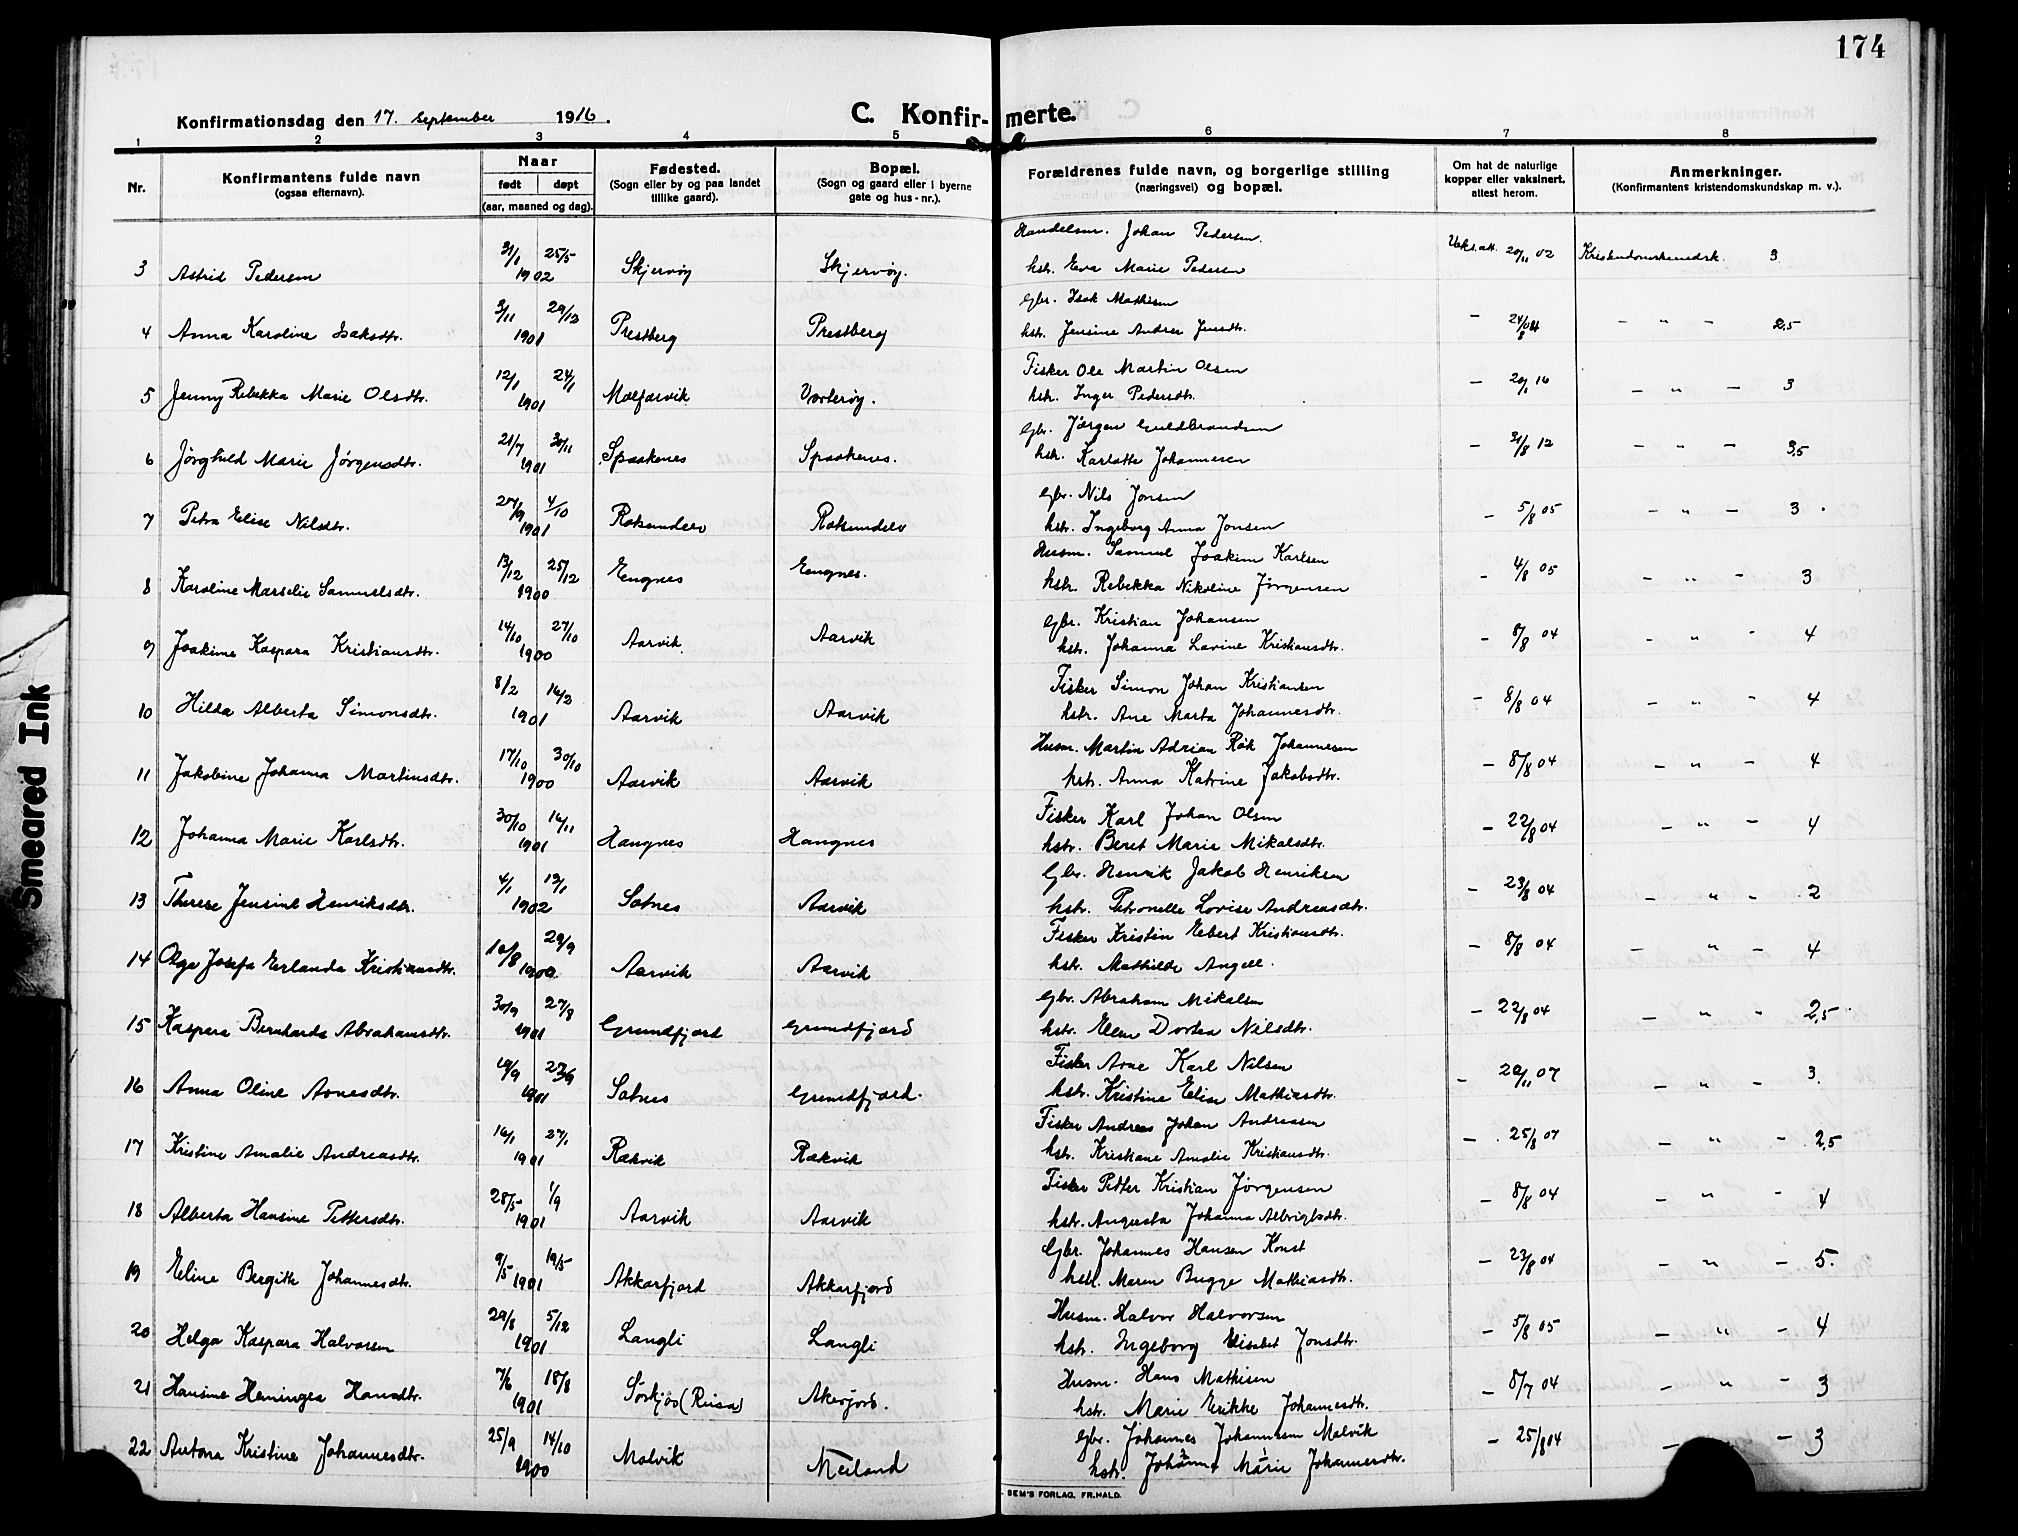 174
Konfirmationsdag den 17. September 1916.
C. Konfirmerte.
1 2 3 4 5 6 7 8
Nr.
Konfirmantens fulde navn
(ogsaa efternavn).
Naar
født døpt
(aar, maaned og dag).
Fødested.
(Sogn eller by og paa landet
tillike gaard).
Bopæl.
(Sogn og gaard eller i byerne
gate og hus-nr.).
Forældrenes fulde navn, og borgerlige stilling
(næringsvei) og bopæl.
Om hat de naturlige
kopper eller vaksinert,
attest herom.
Anmerkninger.
(Konfirmantens kristendomskundskap m. v.).
Handelsm. Johan Pedersen.
3 Astrid Pedersen 31/1 25/5 1902 Skjervøy Skjervøy. hstr. Eva Marie Pedersen Vaks.att. 20/11 02 3
Gbr. Isak Mathisen
4 Anna Karoline Isaksdtr. 3/11 29/12 1901 Prestberg Prestberg hstr. Jensine Andrea Jensdtr. — 24/8 04 — " — 2,5
Fisker Ole Martin Olsen
5 Jenny Rebekka Marie Olsdtr. 12/1 24/1 1901 Maefjarvik Vorterøy. hstr. Inger Pedersdtr. — 20/1 16 — " — 3
Gbr. Jørgen Guldbrandsen
6 Jørghild Marie Jørgensdtr. 21/7 30/11 1901 Spaakenes Spaakenes. hstr. Karlotte Johannesen — 31/8 12 — " — 3,5
Gbr. Nils Jonsen
7 Petra Elise Nilsdtr. 27/9 4/10 1901 Roksundelv Roksundelv hstr. Ingeborg Anna Jonsen — 5/8 05 — " — 3.
Husm. Samuel Joakim Karlsen
8 Karoline Marselie Samuelsdtr. 13/12 25/12 1900 Engnes Engnes. hstr. Rebekka Nikoline Jørgensen — 4/8 05 — " — 3
Gbr. Kristian Johansen
9 Joakime Kaspara Kristiansdtr. 14/10 27/10 1900 Aarvik Aarvik hstr. Johanna Lavine Kristiansdtr. — 8/8 04 — " — 4
Fisker Simon Johan Kristiansen
10 Hilda Alberta Simonsdtr. 8/2 16/2 1901 Aarvik Aarvik hstr. Ane Marta Johannesdtr. — 8/8 04 — " — 4
Husm. Martin Adrian Røk Johannesen
11 Jakobine Johanna Martinsdtr. 17/10 30/10 1900 Aarvik Aarvik hstr. Anna Katrine Jakobsdtr. — 8/8 04 — " — 4
Fisker Karl Johan Olsen
12 Johanna Marie Karlsdtr. 30/10 16/11 1901 Haugnes Haugnes hstr. Beret Marie Mikalsdtr. — 22/8 04 — " — 4
Gbr. Henrik Jakob Henriksen
13 Therese Jensine Henriksdtr. 4/1 19/1 1902 Sotnes Aarvik hstr. Petronelle Lovise Andreasdtr. — 23/8 04 — " — 2
Fisker Kristin Eebert Kristiansdtr.
14 Olga Josefa Erlanda Kristiansdtr. 10/8 29/9 1900 Aarvik Aarvik hstr. Mathilde Angell. — 8/8 04 — " — 4
Gbr. Abraham Mikalsen
15 Kaspara Bernharda Abrahamsdtr. 30/7 27/8 1901 Grundfjord Grundfjord hstr. Ellen Dortea Nilsdtr. — 22/8 04 — " — 2,5
Fisker Arne Karl Nilsen
16 Anna Oline Arnesdtr. 19/9 29/9 1901 Sotnes Grundfjord. hstr. Kristine Elise Mathiasdtr. — 20/11 07 — " — 3.
Fisker Andreas Johan Andreassen
17 Kristine Amalie Andreasdtr. 16/1 27/1 1901 Rækvik Rækvik hstr. Kristiane Amalie Kristiansdtr. — 25/8 07 — " — 2,5
Fisker Petter Kristian Jørgensen
18 Alberta Hansine Pettersdtr. 28/5 1/9 1901 Aarvik Aarvik hstr. Augusta Johanna Albrigtsdtr. — 8/8 04 — " — 4
Gbr. Johannes Hansen Konst
19 Eline Bergitte Johannesdtr. 9/5 19/5 1901 Akkarfjord Akkarfjord hstr. Maren Bugge Mathiasdtr. — 23/8 04 — " — 5.
Husm. Halvor Halvorsen
20 Helga Kaspara Halvorsen 29/8 5/12 1901 Langli Langli hstr. Ingeborg Elisabet Jonsdtr. — 5/8 05 — " — 4
Husm. Hans Mathisen
21 Hansine Heminga Hansdtr. 7/6 18/8 1901 Sørkjos (Reisa) Akerjord. hstr. Marie Erikke Johannesdtr. — 8/7 04 — " — 3
Gbr. Johannes Johannesen Malvik
22 Antona Kristine Johannesdtr. 25/9 14/10 1900 Malvik Meiland hstr. Johanna Marie Johannesdtr. — 25/8 04 — " — 3
SEM'S FORLAG, FR.HALD.
Smeared Ink